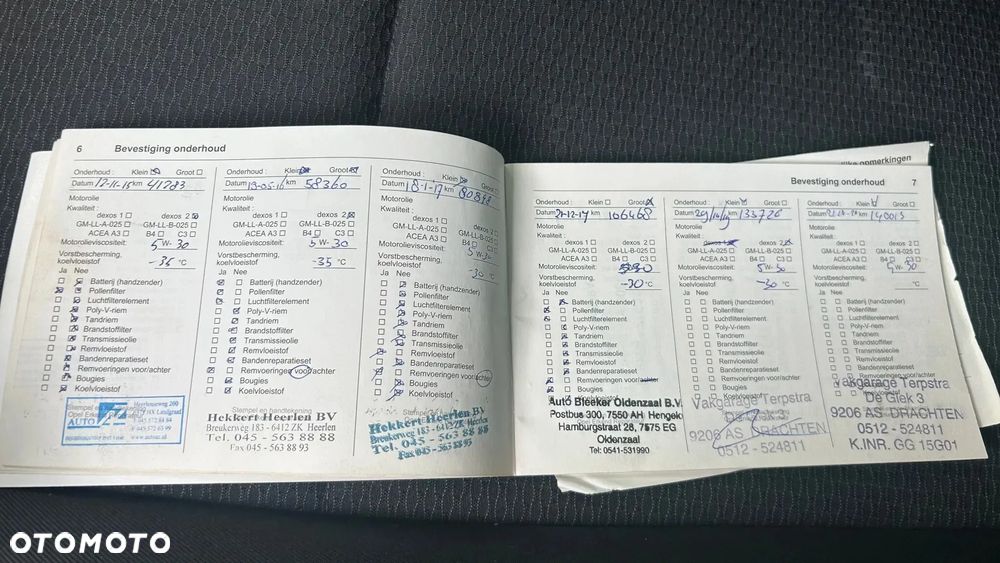 6 Bevestiging onderhoud
Onderhoud : Klein Groot
Datum 12-11-15 km 41283
Motorolie
Kwaliteit :
dexos 1 dexos 2
GM-LL-A-025 GM-LL-B-025
ACEA A3 B4 C3
Motorolieviscositeit: 5W-30
Vorstbescherming,
koelvloeistof -35 °C
Ja Nee
Batterij (handzender)
Pollenfilter
Luchtfilterelement
Poly-V-riem
Tandriem
Brandstoffilter
Transmissieolie
Remvloeistof
Bandenreparatieset
Remvoeringen voor/achter
Bougies
Koelvloeistof
Heerlenseweg 200
AUTO
www.autoaz.nl
Onderhoud : Klein Groot
Datum 19-05-16 km 58360
Motorolie
Kwaliteit :
dexos 1 dexos 2
GM-LL-A-025 GM-LL-B-025
ACEA A3 B4 C3
Motorolieviscositeit: 5W-30
Vorstbescherming,
koelvloeistof -35 °C
Ja Nee
Batterij (handzender)
Pollenfilter
Luchtfilterelement
Poly-V-riem
Tandriem
Brandstoffilter
Transmissieolie
Remvloeistof
Bandenreparatieset
Remvoeringen voor/achter
Bougies
Koelvloeistof
Stempel en handtekening
Hekkert Heerlen BV
Breukerweg 183 - 6412 ZK Heerlen
Tel. 045 - 563 88 88
Fax 045 - 563 88 93
Onderhoud : Klein Groot
Datum 18-1-17 km 80898
Motorolie
Kwaliteit :
dexos 1 dexos 2
GM-LL-A-025 GM-LL-B-025
ACEA A3 B4 C3
Motorolieviscositeit: 5W-30
Vorstbescherming,
koelvloeistof -30 °C
Ja Nee
Batterij (handzender)
Pollenfilter
Luchtfilterelement
Poly-V-riem
Tandriem
Brandstoffilter
Transmissieolie
Remvloeistof
Bandenreparatieset
Remvoeringen voor/achter
Bougies
Koelvloeistof
Hekkert Heerlen BV
Breukerweg 183 - 6412 ZK Heerlen
Tel. 045 - 563 88 88
Fax 045 - 563 88 93
opmerkingen
Bevestiging onderhoud 7
Onderhoud : Klein Groot
Datum 21-12-17 km 106468
Motorolie
Kwaliteit :
dexos 1 dexos 2
GM-LL-A-025 GM-LL-B-025
ACEA A3 B4 C3
Motorolieviscositeit:
Vorstbescherming,
koelvloeistof -30 °C
Ja Nee
Batterij (handzender)
Pollenfilter
Luchtfilterelement
Poly-V-riem
Tandriem
Brandstoffilter
Transmissieolie
Remvloeistof
Bandenreparatieset
Remvoeringen voor/achter
Bougies
Koelvloeistof
Auto Bleeker Oldenzaal B.V.
Postbus 300, 7550 AH Hengelo
Hamburgstraat 28, 7575 EG
Oldenzaal
Tel: 0541-531990
Onderhoud : Klein Groot
Datum km 133726
Motorolie
Kwaliteit :
dexos 1 dexos 2
GM-LL-A-025 GM-LL-B-025
ACEA A3 B4 C3
Motorolieviscositeit: 5W-30
Vorstbescherming,
koelvloeistof -30 °C
Ja Nee
Batterij (handzender)
Pollenfilter
Luchtfilterelement
Poly-V-riem
Tandriem
Brandstoffilter
Transmissieolie
Remvloeistof
Bandenreparatieset
Remvoeringen voor/achter
Bougies
Vakgarage Terpstra
9206 AS DRACHTEN
0512 - 524811
Onderhoud : Klein Groot
Datum km
Motorolie
Kwaliteit :
dexos 1 dexos 2
GM-LL-A-025 GM-LL-B-025
ACEA A3 B4 C3
Motorolieviscositeit: 5W-30
Vorstbescherming,
koelvloeistof °C
Ja Nee
Batterij (handzender)
Pollenfilter
Luchtfilterelement
Poly-V-riem
Tandriem
Brandstoffilter
Transmissieolie
Remvloeistof
Bandenreparatieset
Remvoeringen voor/achter
Vakgarage Terpstra
De Giek 3
9206 AS DRACHTEN
0512 - 524811
K.INR. GG 15G01
OTOMOTO